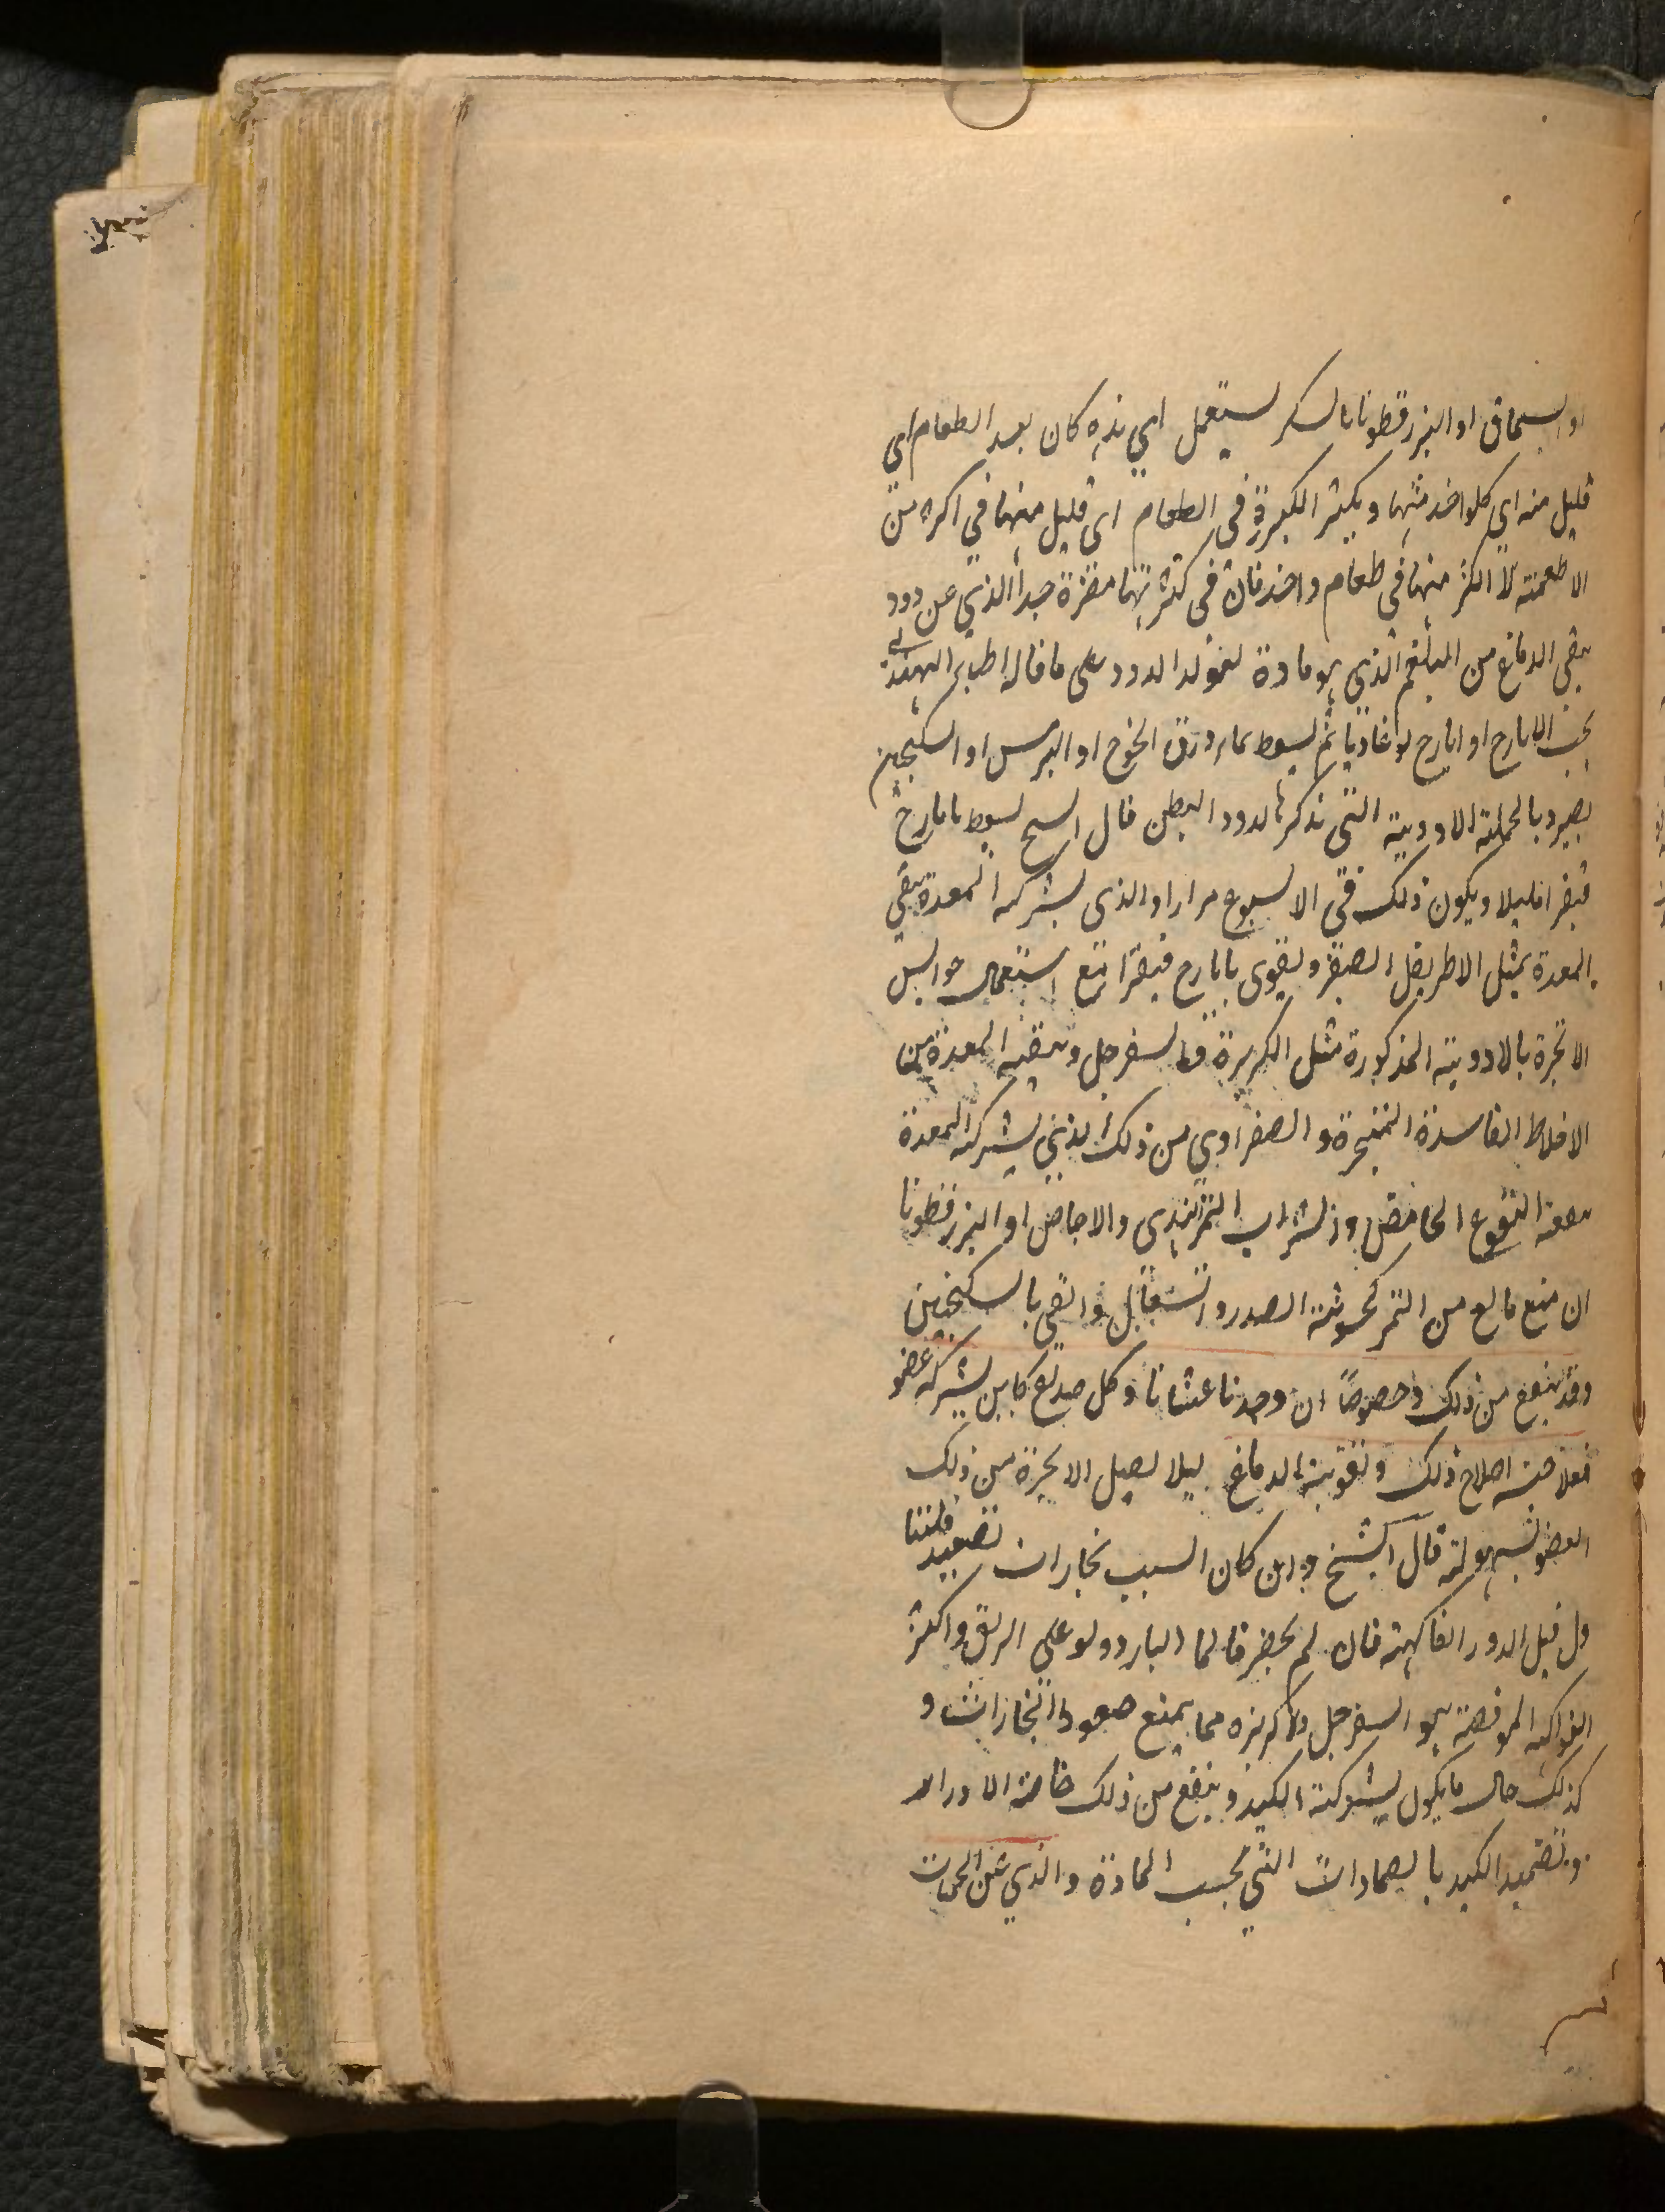 او السماق او البزرقطونا بالسكر يستعمل اي هذه كان بعد الطعام اي
قليل منه اي كلواحد منها ويكثر الكزبرة في الطعام اي قليل منها في اكثر من
الاطعمة لا اكثر منها في طعام واحد فان في كثرتها مضرة جدا الذي عن دود
ينقي الدماغ من البلغم الذي هو مادة لتولد الدود على ما قاله اطباء الهند
بحب الايارج او ايارج لوغاديا ثم يسعط بماء ورق الخوخ او الترمس او السكنجبين
وبالجملة الادوية التي تذكر لدود البطن قال المسيح يسعط بايارج
فيقرا قليلا ويكون ذلك في الاسبوع مرارا والذي بشركة المعدة ينقي
المعدة بمثل الاطريفل الصغير ويقوى بايارج فيقرا مع استعمال حوابس
الابخرة بالادوية المذكورة مثل الكزبرة والسفرجل وتنقية المعدة من
الاخلاط الفاسدة المتبخرة والصفراوي من ذلك الذي بشركة المعدة
ينفعه النقوع الحامض وشراب التمر هندي والاجاص او البزرقطونا
ان منع مانع من التمر كخشونة الصدر والسعال والقي بالسكنجبين
وقد ينفع من ذلك وخصوصا ان وجدنا غثيانا وكل صداع كاين بشركة عضو
فعلاجه اصلاح ذلك وتقوية الدماغ ليلا يصل الابخرة من ذلك
العضو بسهولة قال الشيخ وان كان السبب بخارات تصعد فلتنا
ول قبل الدور الفاكهة فان لم يحضر فالما البارد ولو على الريق واكثر
الفواكه الموافقة هو السفرجل والكزبرة مما يمنع صعود البخارات و
كذلك حال ما يكون بشركة الكبد وينفع من ذلك خاصة الادرار
وتضميد الكبد بالضمادات التي بحسب المادة والذي عن الحميات